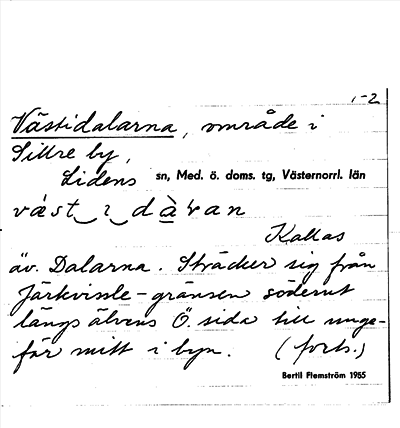 1-2
Västidalarna, område i
Sillre by,
Lidens sn, Med. ö. doms. tg, Västernorrl. län
väst i dàran
Kallas
äv. Dalarna. Sträcker sig från
Järkvissle-gränsen söderut
längs älvens Ö. sida till unge-
fär mitt i byn. (forts.)
Bertil Flemström 1955